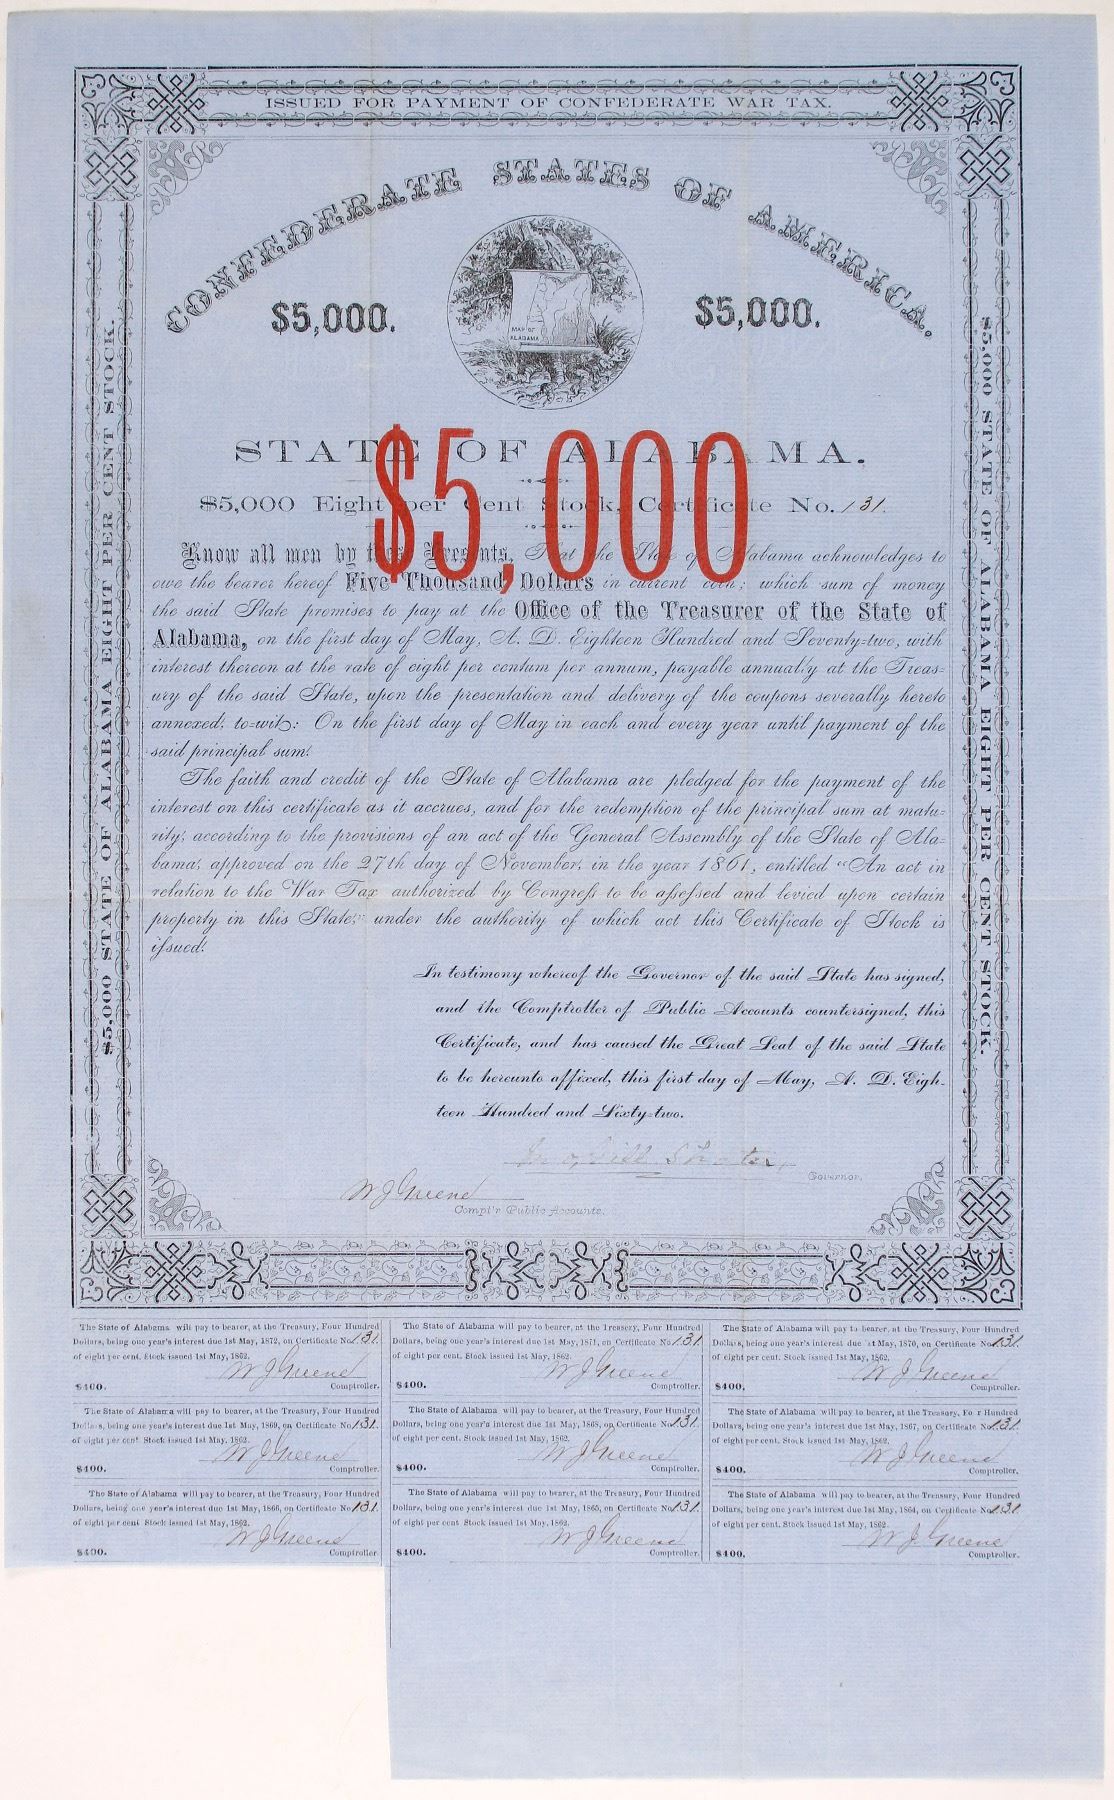 ISSUED FOR PAYMENT OF CONFEDERATE WAR TAX.
CONFEDERATE STATES OF AMERICA.
$5,000.
$5,000.
MAP OF
ALABAMA
STATE OF ALABAMA.
$5,000
$5,000 Eight per Cent Stock, Certificate No. 131.
Know all men by these Presents, That the State of Alabama acknowledges to
owe the bearer hereof Five Thousand Dollars in current coin; which sum of money
the said State promises to pay at the Office of the Treasurer of the State of
Alabama, on the first day of May, A. D. Eighteen Hundred and Seventy-two, with
interest thereon at the rate of eight per centum per annum, payable annually at the Treas-
ury of the said State, upon the presentation and delivery of the coupons severally hereto
annexed; to-wit: On the first day of May in each and every year until payment of the
said principal sum.
The faith and credit of the State of Alabama are pledged for the payment of the
interest on this certificate as it accrues, and for the redemption of the principal sum at matu-
rity, according to the provisions of an act of the General Assembly of the State of Ala-
bama, approved on the 27th day of November, in the year 1861, entitled "An act in
relation to the War Tax authorized by Congress to be assessed and levied upon certain
property in this State," under the authority of which act this Certificate of Stock is
issued.
In testimony whereof the Governor of the said State has signed,
and the Comptroller of Public Accounts countersigned, this
Certificate, and has caused the Great Seal of the said State
to be hereunto affixed, this first day of May, A. D. Eigh-
teen Hundred and Sixty-two.
Jno. Gill Shorter,
Governor.
W J Greene
Compt'r Public Accounts.
$5,000 STATE OF ALABAMA EIGHT PER CENT STOCK.
$5,000 STATE OF ALABAMA EIGHT PER CENT STOCK.
The State of Alabama will pay to bearer, at the Treasury, Four Hundred
Dollars, being one year's interest due 1st May, 1872, on Certificate No. 131.
of eight per cent. Stock issued 1st May, 1862.
W J Greene
$400. Comptroller.
The State of Alabama will pay to bearer, at the Treasury, Four Hundred
Dollars, being one year's interest due 1st May, 1871, on Certificate No. 131.
of eight per cent. Stock issued 1st May, 1862.
W J Greene
$400. Comptroller.
The State of Alabama will pay to bearer, at the Treasury, Four Hundred
Dollars, being one year's interest due 1st May, 1870, on Certificate No. 131.
of eight per cent. Stock issued 1st May, 1862.
W J Greene
$400, Comptroller.
The State of Alabama will pay to bearer, at the Treasury, Four Hundred
Dollars, being one year's interest due 1st May, 1869, on Certificate No. 131.
of eight per cent. Stock issued 1st May, 1862.
W J Greene
$400. Comptroller.
The State of Alabama will pay to bearer, at the Treasury, Four Hundred
Dollars, being one year's interest due 1st May, 1868, on Certificate No. 131.
of eight per cent. Stock issued 1st May, 1862.
W J Greene
$400. Comptroller.
The State of Alabama will pay to bearer, at the Treasury, Four Hundred
Dollars, being one year's interest due 1st May, 1867, on Certificate No. 131.
of eight per cent. Stock issued 1st May, 1862.
W J Greene
$400. Comptroller.
The State of Alabama will pay to bearer, at the Treasury, Four Hundred
Dollars, being one year's interest due 1st May, 1866, on Certificate No. 131.
of eight per cent. Stock issued 1st May, 1862.
W J Greene
$400. Comptroller.
The State of Alabama will pay to bearer, at the Treasury, Four Hundred
Dollars, being one year's interest due 1st May, 1865, on Certificate No. 131.
of eight per cent. Stock issued 1st May, 1862.
W J Greene
$400. Comptroller.
The State of Alabama will pay to bearer, at the Treasury, Four Hundred
Dollars, being one year's interest due 1st May, 1864, on Certificate No. 131.
of eight per cent. Stock issued 1st May, 1862.
W J Greene
$400, Comptroller.